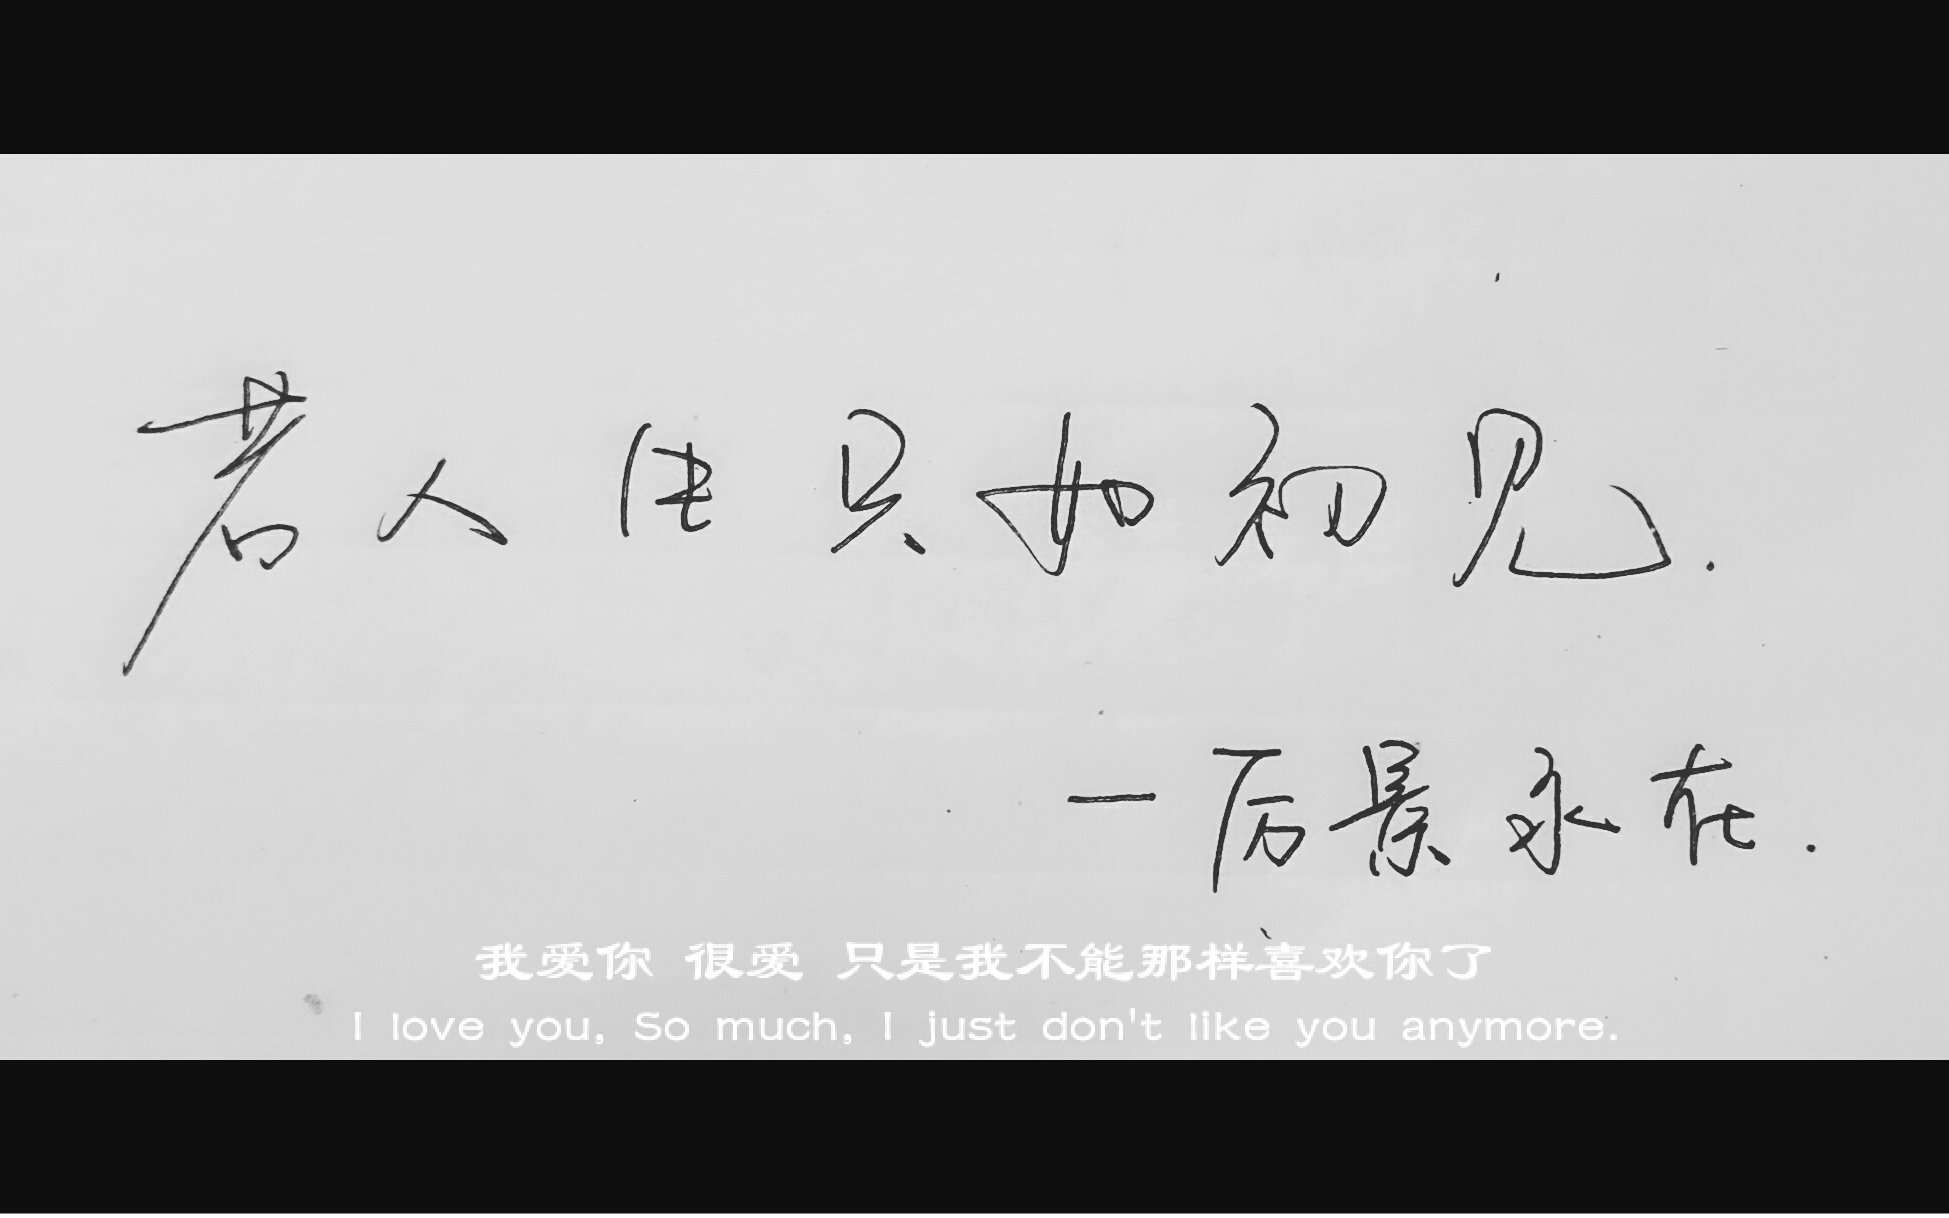 若人生只如初见.
一厉景永在.
我爱你 很爱 只是我不能那样喜欢你了
I love you, So much, I just don't like you anymore.